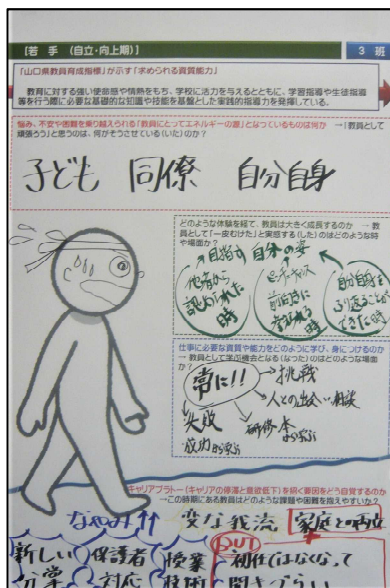 【若手（自立・向上期）】
3 班
「山口県教員育成指標」が示す「求められる資質能力」
教育に対する強い使命感や情熱をもち、学校に活力を与えるとともに、学習指導や生徒指導
等を行う際に必要な基礎的な知識や技能を基盤とした実践的指導力を発揮している。
悩み、不安や困難を乗り越えられる「教員にとってエネルギーの源」となっているものは何か →「教員として
頑張ろう」と思うのは、何がそうさせている（いた）のか？
子ども 同僚 自分自身
どのような体験を経て、教員は大きく成長するのか → 教
員として「一皮むけた」と実感する（した）のはどのような時
や場面か？
目指す 自分の姿
他者から
認められた
時
ピンチ→チャンス
前向きに
考えられる
時
自分自身を
ふり返ることが
できた時
仕事に必要な資質や能力をどのように学び、身につけるのか
→ 教員として学ぶ機会となる（なった）のはどのような場面
か？
常に!!
挑戦
人との出会い・相談
研修・本
から学ぶ
失敗
成功から学ぶ
キャリアプラトー（キャリアの停滞と意欲低下）を招く要因をどう自覚するのか
→この時期にある教員はどのような課題や困難を抱えやすいか？
なやみ↑↑
変な我流
家庭との両立
BUT
新しい
分掌
保護者
対応
授業
技術
初任ではなくなって
聞きづらい